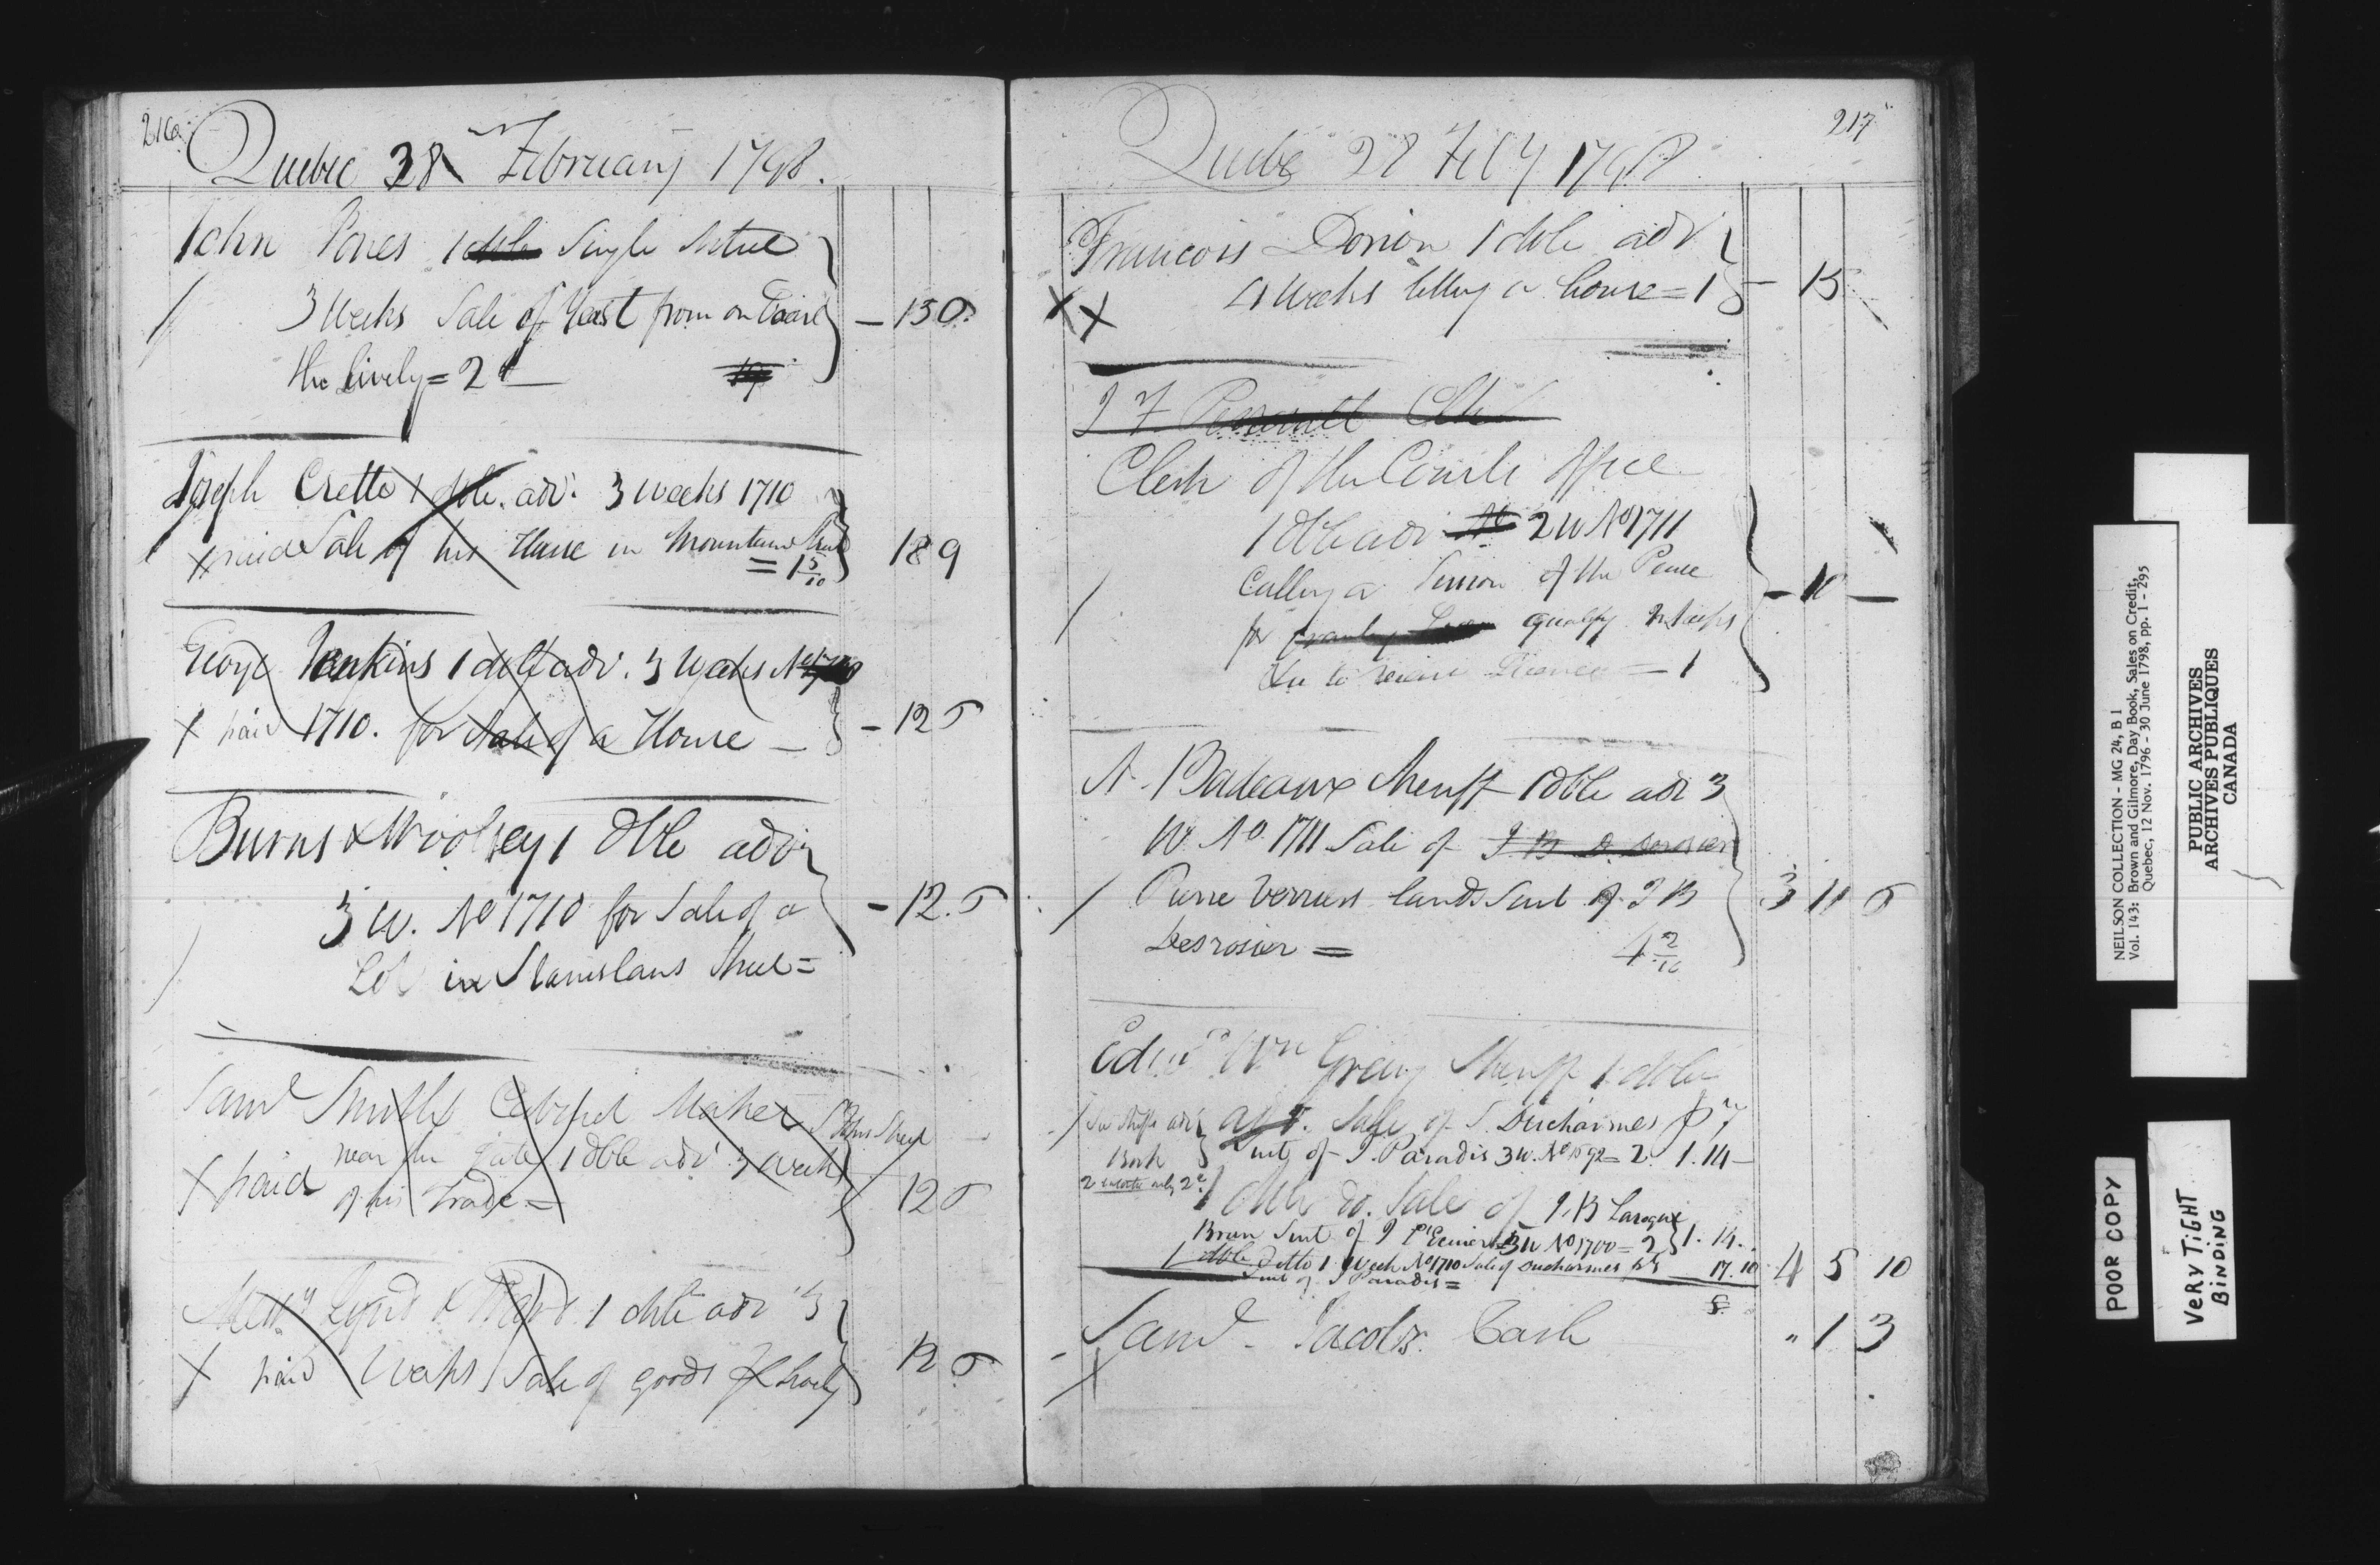 216
Quebec 28 February 1798.
John Jones 1 dble Single
3 Weeks Sale of Yeast from on Board
the Lively = 2
— 13 0
Joseph Crette 1 dble. adv. 3 weeks 1710
X paid Sale of his House in Mountain Street
= 1 5/10
18 9
George Jenkins 1 dble adv. 3 Weeks No
X paid 1710. for Sale of a House —
— 12 5
Burns & Woolsey 1 dble adv
3 W. No 1710 for Sale of a
Lot in Stanislaus Street =
— 12. 5
Saml Smith Cabinet Maker St Johns Street
near the Gate 1 dble adv 3 Weeks
X paid of his Trade =
12 5
Messrs & 1 dble adv 3
X paid Weeks Sale of goods
12 5
217
Quebec 28 Feby 1798
Francois Dorion 1 dble adv
4 Weeks letting a house = 1
— 15
X X
J F Perrault Clk
Clerk of the Courts Office
1 dble adv 2 W No 1711
Calling a Session of the Peace
for qualify
to = 1
— 10 —
A. Badeaux Sheriff 1 dble adv 3
W. No. 1711 Sale of J B D Desrosier
Pierre Verriers lands Suit of J B
Desrosier = 4 2/10
3 11 5
Edwd Wm Gray Sheriff 1 dble
adv. Sale of S. Ducharmes
Book Suit of J. Paradis 3 W. No 1692 = 2 1. 14 —
1 dble do. Sale of J. B Laroque
Suit of J 3 W No 1700 = 2 1. 14.
1 dble Ditto 1 Week No 1710 Sale of Ducharmes 17. 10
Suit of J Paradis =
4 5 10
Saml. Jacobs. Cash
" 1 3
X
NEILSON COLLECTION - MG 24, B 1
Vol. 143: Brown and Gilmore, Day Book, Sales on Credit,
Quebec, 12 Nov. 1796 - 30 June 1798, pp. 1 - 295
PUBLIC ARCHIVES
ARCHIVES PUBLIQUES
CANADA
POOR COPY
VERY TIGHT
BINDING